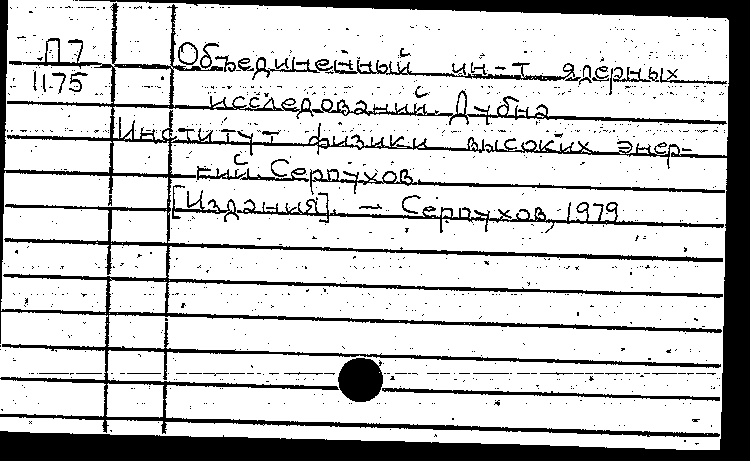 П7
1175
Объединенный ин-т ядерных
исследований. Дубна
Институт физики высоких энер-
гий. Серпухов.
[Издания]. — Серпухов, 1979